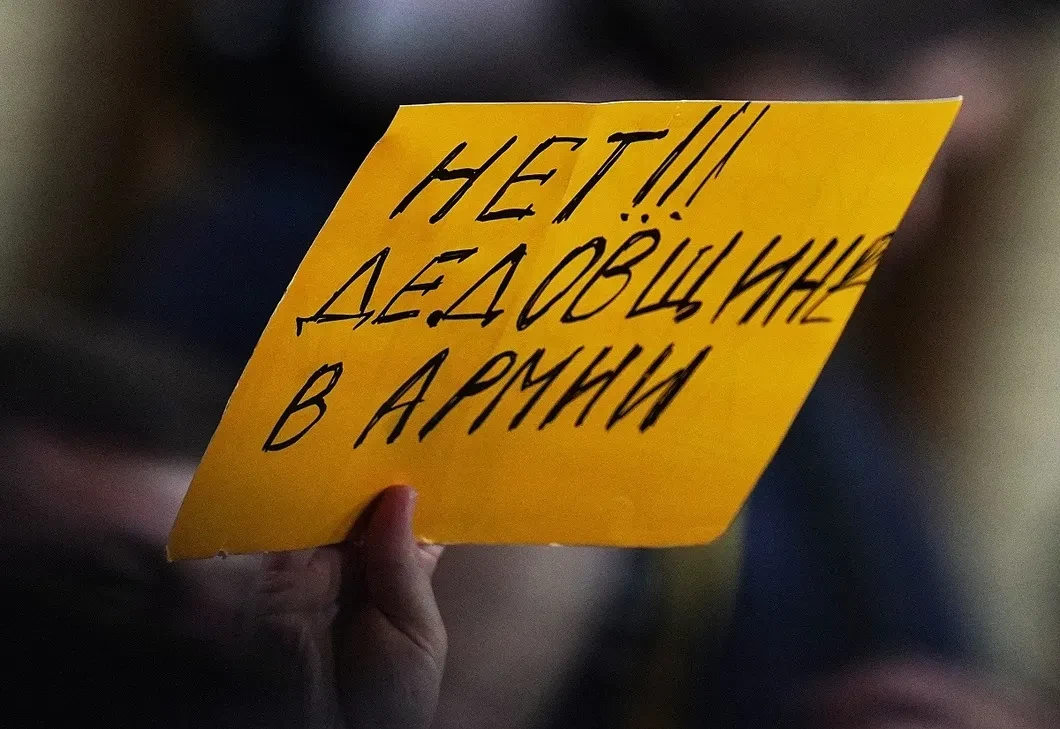 НЕТ!!!
ДЕДОВЩИНЕ
В АРМИИ